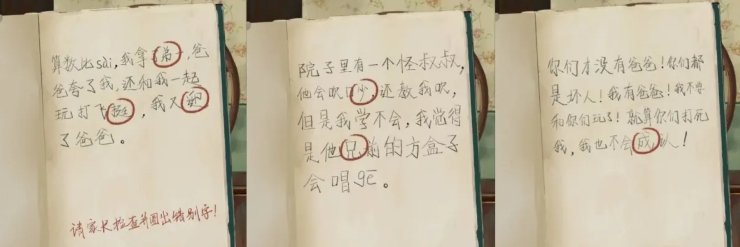 算数比sài,我拿弟一,爸
爸夸了我,还和我一起
玩打飞,我又
了爸爸。
请家长检查并圈出错别字!
院子里有一个怪叔叔,
他会吹口少还教我吹,
但是我学不会,我觉得
是他兄前的方盒子
会唱gē。
你们才没有爸爸!你们都
是坏人!我有爸爸!我不要
和你们玩了!就算你们打死
我,我也不会成认!